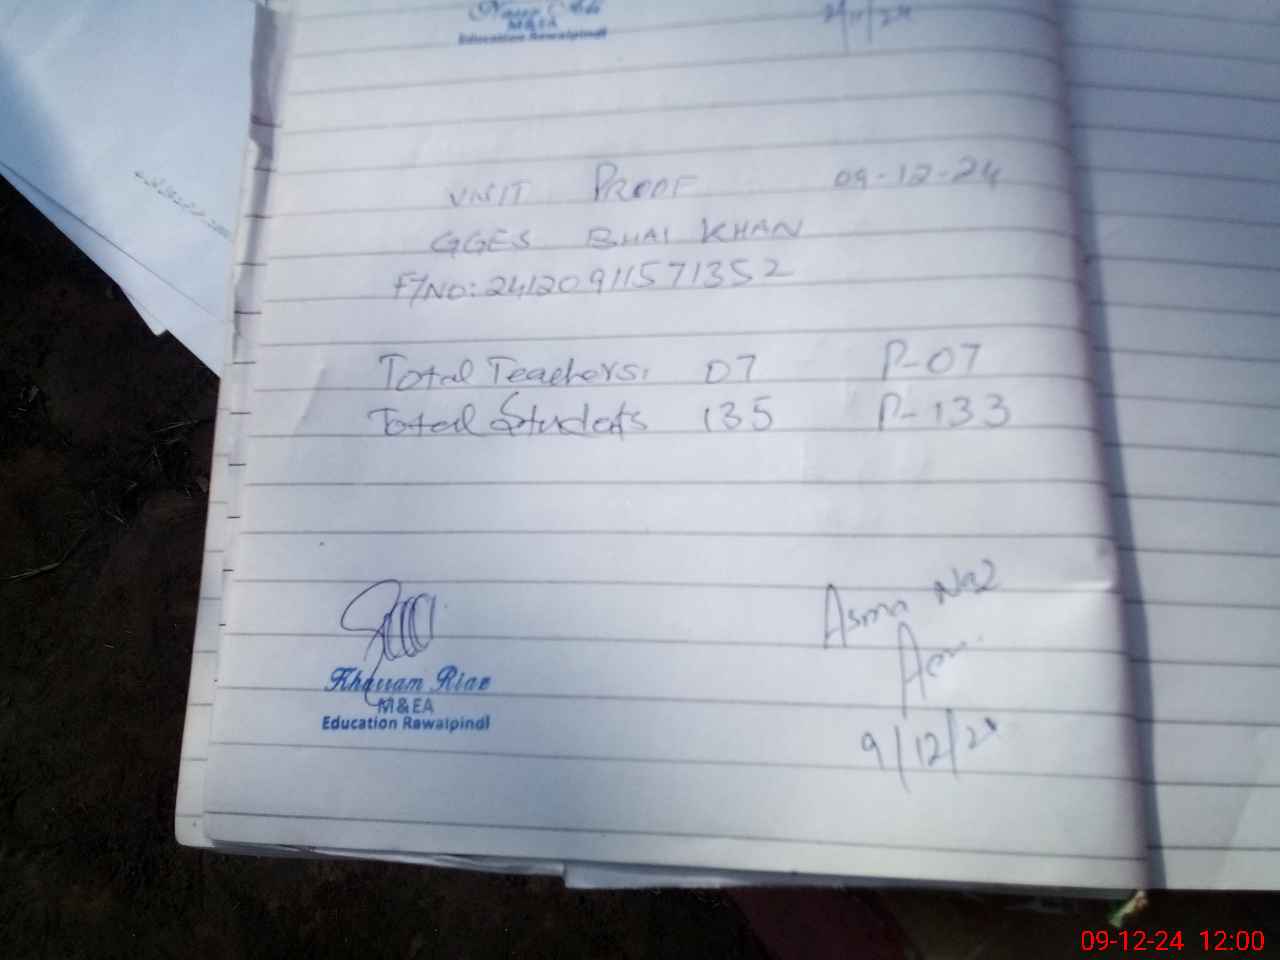 M&EA
Education Rawalpindi
VISIT PROOF 09-12-24
GGES BHAI KHAN
F/NO: 24120911571352
Total Teachers. 07 P-07
Total Students 135 P-133
Asma Naz
Khurram Riaz
M&EA
Education Rawalpindi
9/12/24
09-12-24 12:00